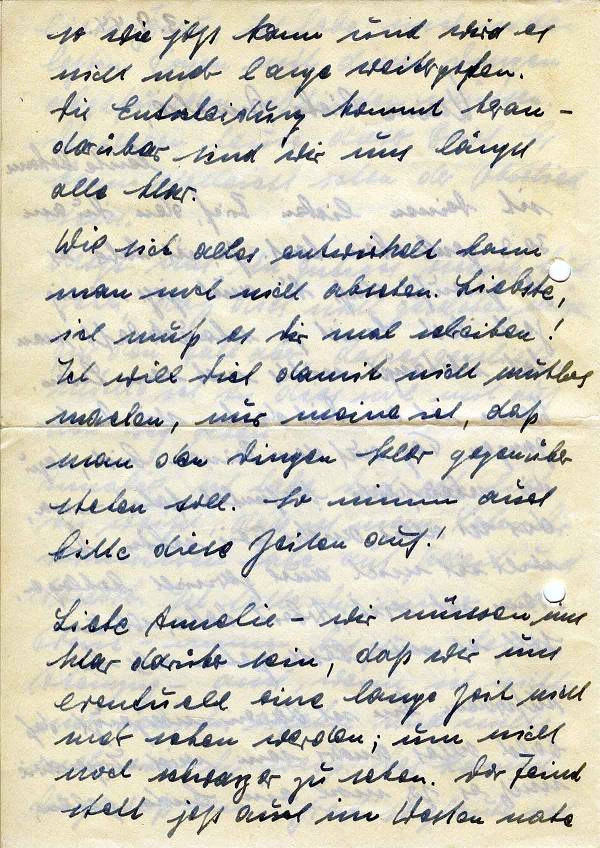 so wie jetzt kann und wird es
nicht mehr lange weitergehen.
Die Entscheidung kommt heran –
darüber sind wir uns längst
alle klar.
Wie sich alles entwickelt kann
man noch nicht absehen. Liebste,
ich muß es Dir mal schreiben!
Ich will Dich damit nicht mutlos
machen, nur meine ich, daß
man den Dingen klar gegenüber
stehen soll. So nimm auch
bitte diese Zeilen auf!
Liebe Annelie – wir müssen uns
klar darüber sein, daß wir uns
eventuell eine lange Zeit nicht
mehr sehen werden; um nicht
noch schwarzer zu sehen. Der Feind
steht jetzt auch im Westen nahe